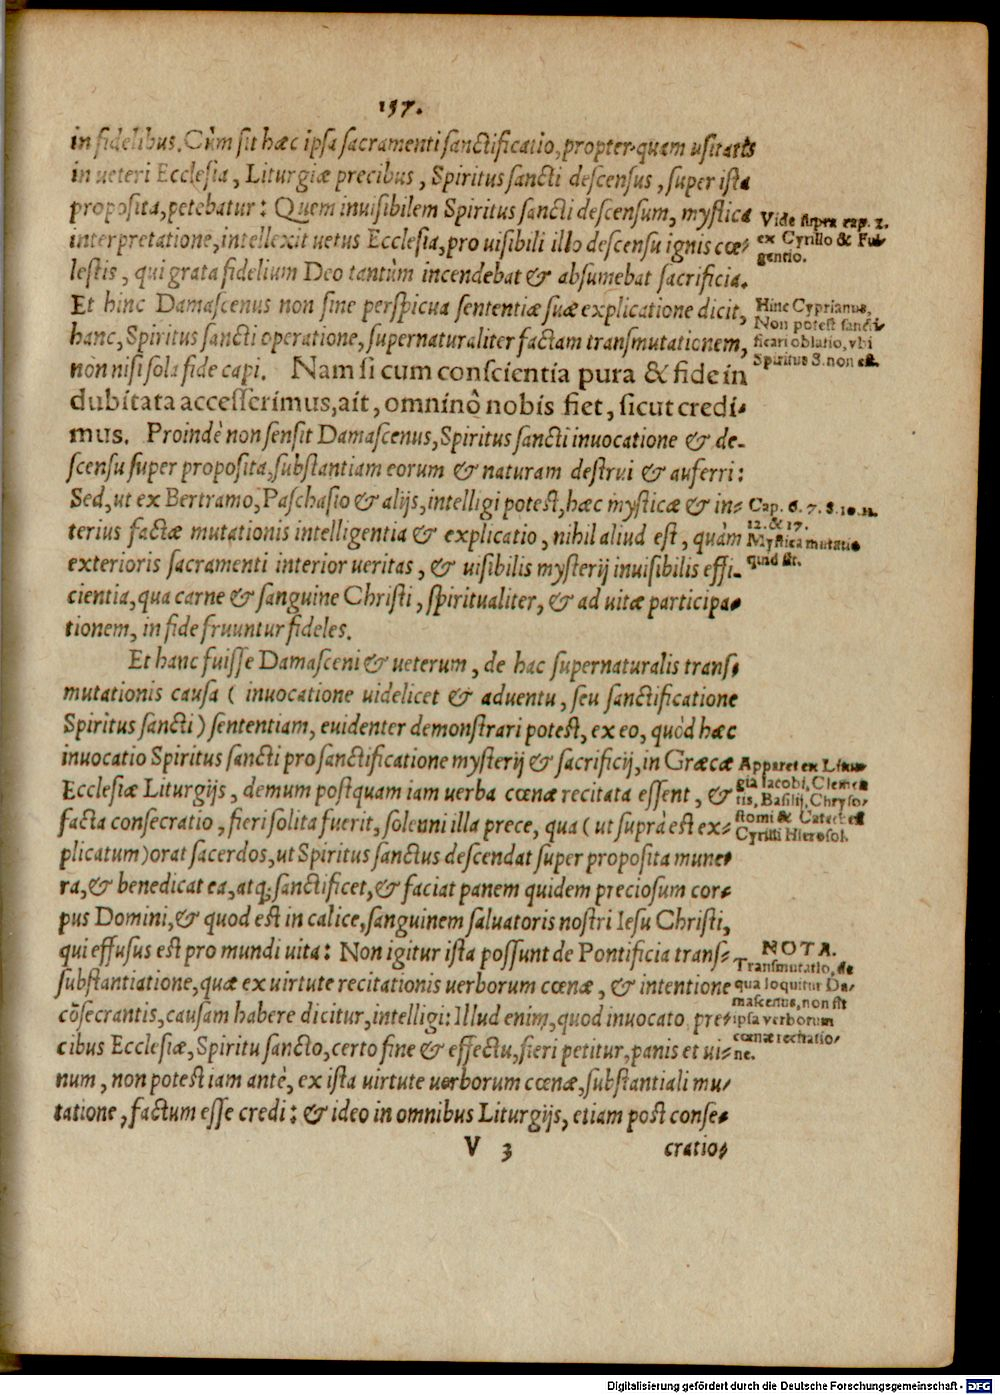 157.
in fidelibus. Cùm sit hæc ipsa sacramenti sanctificatio, propter quam usitatis
in veteri Ecclesia, Liturgiæ precibus, Spiritus sancti descensus, super ista
proposita, petebatur: Quem invisibilem Spiritus sancti descensum, mystica
interpretatione, intellexit uetus Ecclesia, pro uisibili illo descensu ignis cœ-
lestis, qui grata fidelium Deo tantùm incendebat & absumebat sacrificia.
Et hinc Damascenus non sine perspicua sententiæ suæ explicatione dicit,
hanc, Spiritus sancti operatione, supernaturaliter factam transmutationem,
non nisi sola fide capi. Nam si cum conscientia pura & fide in
dubitata accesserimus, ait, omninò nobis fiet, sicut credi-
mus. Proindè non sensit Damascenus, Spiritus sancti inuocatione & de-
scensu super proposita, substantiam eorum & naturam destrui & auferri:
Sed, ut ex Bertramo, Paschasio & alijs, intelligi potest, hæc mysticæ & in-
terius factæ mutationis intelligentia & explicatio, nihil aliud est, quàm
exterioris sacramenti interior ueritas, & uisibilis mysterij inuisibilis effi-
cientia, qua carne & sanguine Christi, spiritualiter, & ad uitæ participa-
tionem, in fide fruuntur fideles.
Et hanc fuisse Damasceni & ueterum, de hac supernaturalis trans-
mutationis causa ( inuocatione uidelicet & aduentu, seu sanctificatione
Spiritus sancti) sententiam, euidenter demonstrari potest, ex eo, quòd hæc
inuocatio Spiritus sancti pro sanctificatione mysterij & sacrificij, in Græcæ
Ecclesiæ Liturgijs, demum postquam iam uerba cœnæ recitata essent, &
facta consecratio, fieri solita fuerit, solenni illa prece, qua ( ut suprà est ex-
plicatum) orat sacerdos, ut Spiritus sanctus descendat super proposita mune-
ra, & benedicat ea, atq; sanctificet, & faciat panem quidem preciosum cor-
pus Domini, & quod est in calice, sanguinem saluatoris nostri Iesu Christi,
qui effusus est pro mundi uita: Non igitur ista possunt de Pontificia trans-
substantiatione, quæ ex uirtute recitationis uerborum cœnæ, & intentione
cōsecrantis, causam habere dicitur, intelligi: Illud enim, quod inuocato pre-
cibus Ecclesiæ, Spiritu sancto, certo fine & effectu, fieri petitur, panis et ui-
num, non potest iam antè, ex ista uirtute uerborum cœnæ, substantiali mu-
tatione, factum esse credi: & ideo in omnibus Liturgijs, etiam post conse-
V 3 cratio-
Vide supra cap. 2.
ex Cyrillo & Ful-
gentio.
Hinc Cyprianus,
Non potest sancti-
ficari oblatio, vbi
Spiritus S. non est.
Cap. 6. 7. 8. 10. 11.
12. & 17.
Mystica mutatio
quid sit.
Apparet ex Litur-
gia Iacobi, Clemen
tis, Basilij, Chryso-
stomi & Catech.
Cyrilli Hierosol.
NOTA.
Transmutatio, de
qua loquitur Da-
mascenus, non fit
ipsa verborum
cœnæ recitatio-
ne.
Digitalisierung gefördert durch die Deutsche Forschungsgemeinschaft - DFG